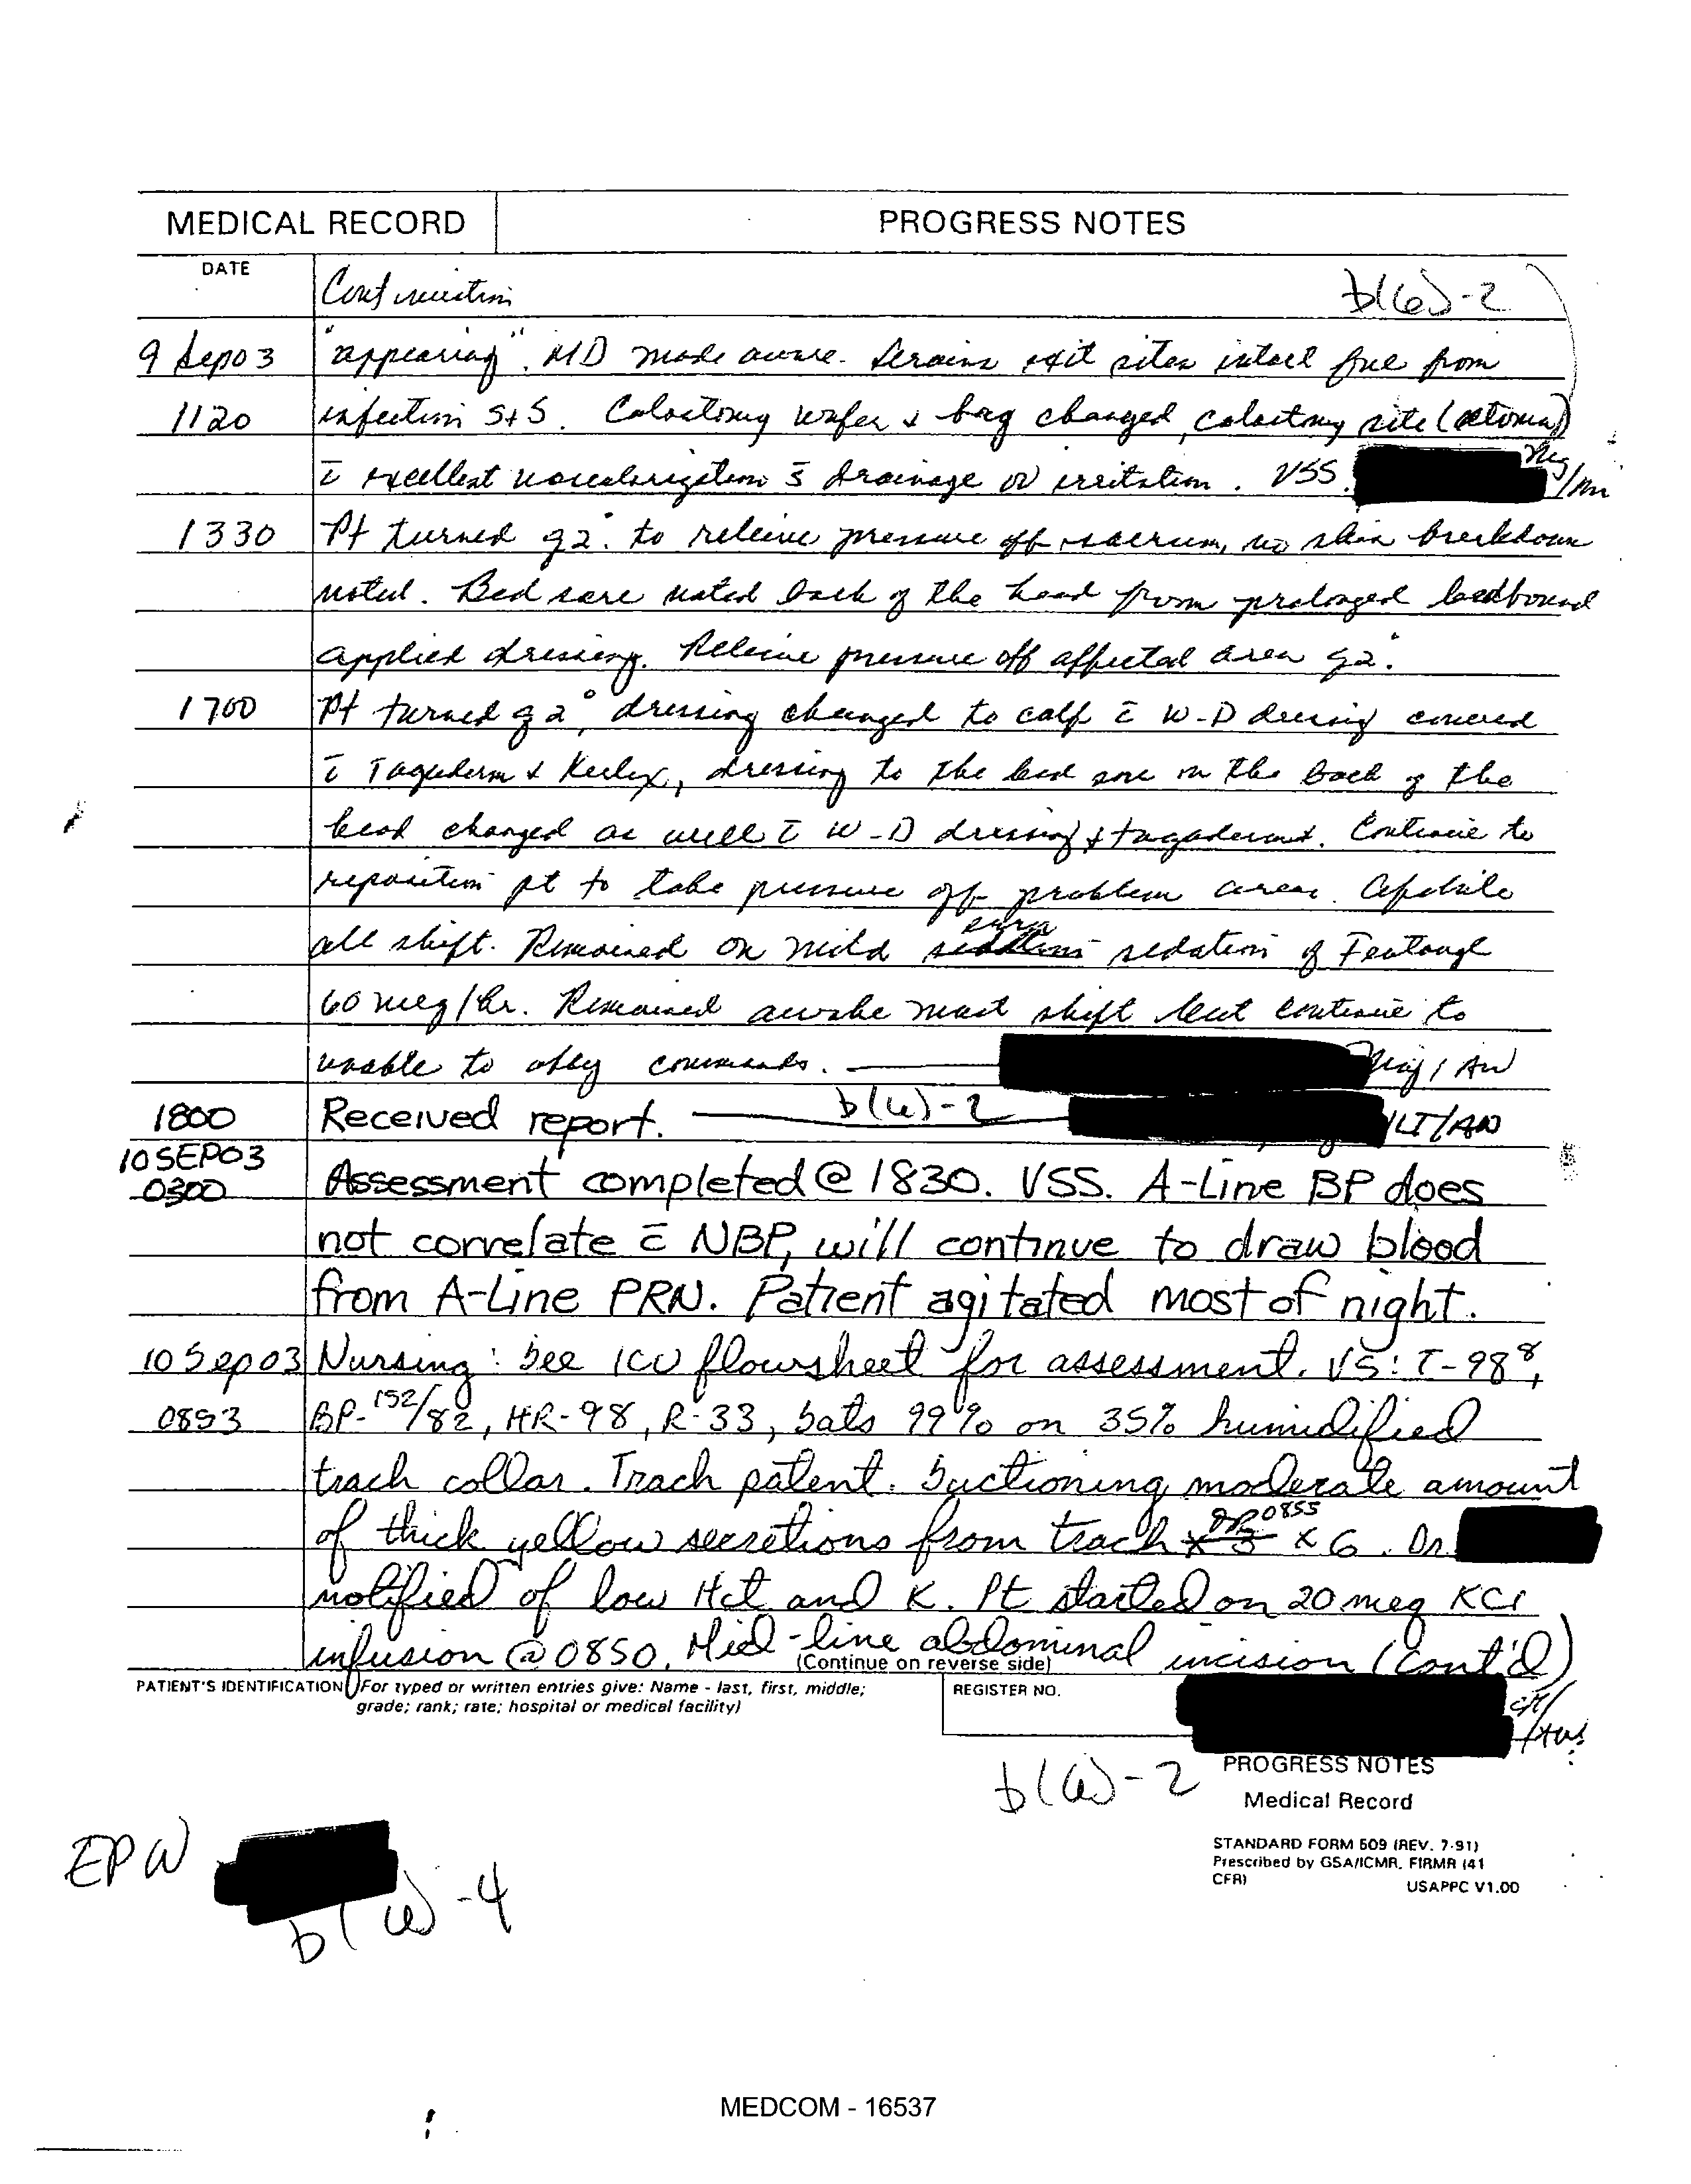 MEDICAL RECORD PROGRESS NOTES
DATE
Continuation b(6)-2
9 Sep 03 "appearing". MD made aware. Drains exit sites intact free from
1120 infection S+S. Colostomy wafer & bag changed, colostomy site (stoma)
c̄ excellent vascularization s̄ drainage or irritation. VSS. /AN
1330 Pt turned q2°. to relieve pressure off sacrum, no skin breakdown
noted. Bed sore noted back of the head from prolonged bedbound
applied dressing. Relieve pressure off affected area q2°.
1700 Pt turned q2°, dressing changed to calf c̄ W-D dressing covered
c̄ Tagaderm & Kerlex, dressing to the bed sore on the back of the
head changed as well c̄ W-D dressing & tagaderm. Continue to
reposition pt to take pressure off problem areas. Afebrile
all shift. Remained on mild sedation of Fentanyl
60 mcg/hr. Remained awake most shift but continue to
unable to obey commands. Maj / AN
1800 Received report. b(6)-2 1LT/AN
10SEP03
0300 Assessment completed @ 1830. VSS. A-Line BP does
not correlate c̄ NBP, will continue to draw blood
from A-Line PRN. Patient agitated most of night.
10 Sep 03 Nursing: See ICU flowsheet for assessment. VS: T-98⁸,
0853 BP-152/82, HR-98, R-33, Sats 99% on 35% humidified
trach collar. Trach patent. Suctioning moderate amount
0855
of thick yellow secretions from trach x 3 x 6. Dr.
notified of low Hct and K. Pt started on 20 meq KCl
infusion @ 0850. Mid-line abdominal incision (cont'd)
(Continue on reverse side)
PATIENT'S IDENTIFICATION (For typed or written entries give: Name - last, first, middle;
grade; rank; rate; hospital or medical facility)
REGISTER NO.
b(6)-2
PROGRESS NOTES
Medical Record
STANDARD FORM 509 (REV. 7-91)
Prescribed by GSA/ICMR, FIRMR (41
CFR)
USAPPC V1.00
EPW
b(6)-4
MEDCOM - 16537